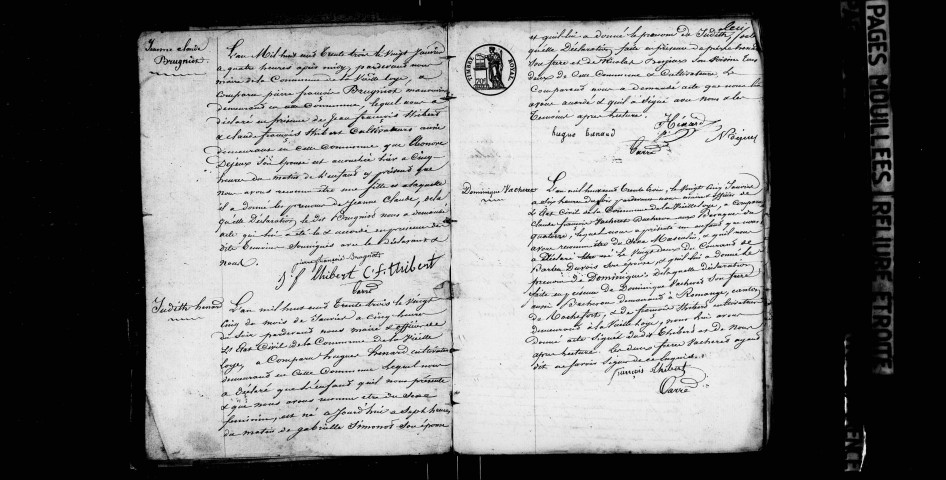 Jeanne claude
Brugniot
L'an Mil huit cent Trente trois le vingt Janvier
a quatre heures après midy, pardevant nous
maire de la Commune de la Vieille loye, a
comparu pierre françois Brugniot manouvrier
demeurant en cette Commune, lequel nous a
déclaré en présence de Jean françois thibert
& claude françois thibert Cultivateurs
demeurant en cette Commune que Eleonore
Dejeux Son Epouse est accouchée hier a Cinq
heures du matin de l'enfant y présent que
nous avons reconnu être une fille a laquelle
il a donné le prenom de Jeanne Claude, de la
quelle Déclaration, le dit Brugniot nous a demandé
acte qui lui a été accordé en présence des
dits temoins Soussignés avec le déclarant &
nous.
pierre françois Brugniot
J f thibert C. f. thibert
Carré
Judith henard
L'an mil huit cent trente trois le vingt
Cinq du mois de Janvier a Cinq heures
du Soir pardevant nous maire & officier de
L'Etat Civil de la Commune de la Vieille
loye, a Comparu hugue henard cultivateur
demeurant en Cette Commune lequel nous
a déclaré que l'enfant qu'il nous présente
& que nous avons reconnu etre du Sexe
feminin, est né aujourd'hui a Sept heures
du matin de gabrielle Simonot Son épouse
TIMBRE ROYAL
et qu'il lui a donné le prenom de Judith,
quelle Déclaration, faite en présence de pierre henard
Son frère et de Nicolas Son Voisin tous
deux de cette Commune & Cultivateurs. Le
Comparant nous a demandé acte que nous lui
avons accordé & qu'il a Signé avec nous & les
temoins après lecture.
hugue henard
Hénard
Carré
Dominique Vacheret
L'an mil huit cent trente trois, le Vingt Cinq Janvier
a six heures du soir pardevant nous maire officier de
L'Etat Civil de la Commune de la Vieille loye, a Comparu
Claude françois Vacheret
lequel nous a présenté un enfant que nous
avons reconnu être du Sexe Masculin, & qu'il nous
a Déclaré être né le Vingt deux du Courant de
Son épouse, & qu'il lui a donné le
prenom de Dominique, de laquelle déclaration
faite en présence de Dominique Vacheret Son frere
aussi Vacheron demeurant a Romange, canton
de Rochefort, & de françois thibert cultivateur
demeurant a la Vieille Loye, nous lui avons
Donné acte Signé dudit thibert & de Nous
apres lecture. Les deux frere Vacheret ayant
dit ne savoir Signer de ce enquis.
françois thibert
Carré
PAGES MOUILLEES RELIURE ETROITE